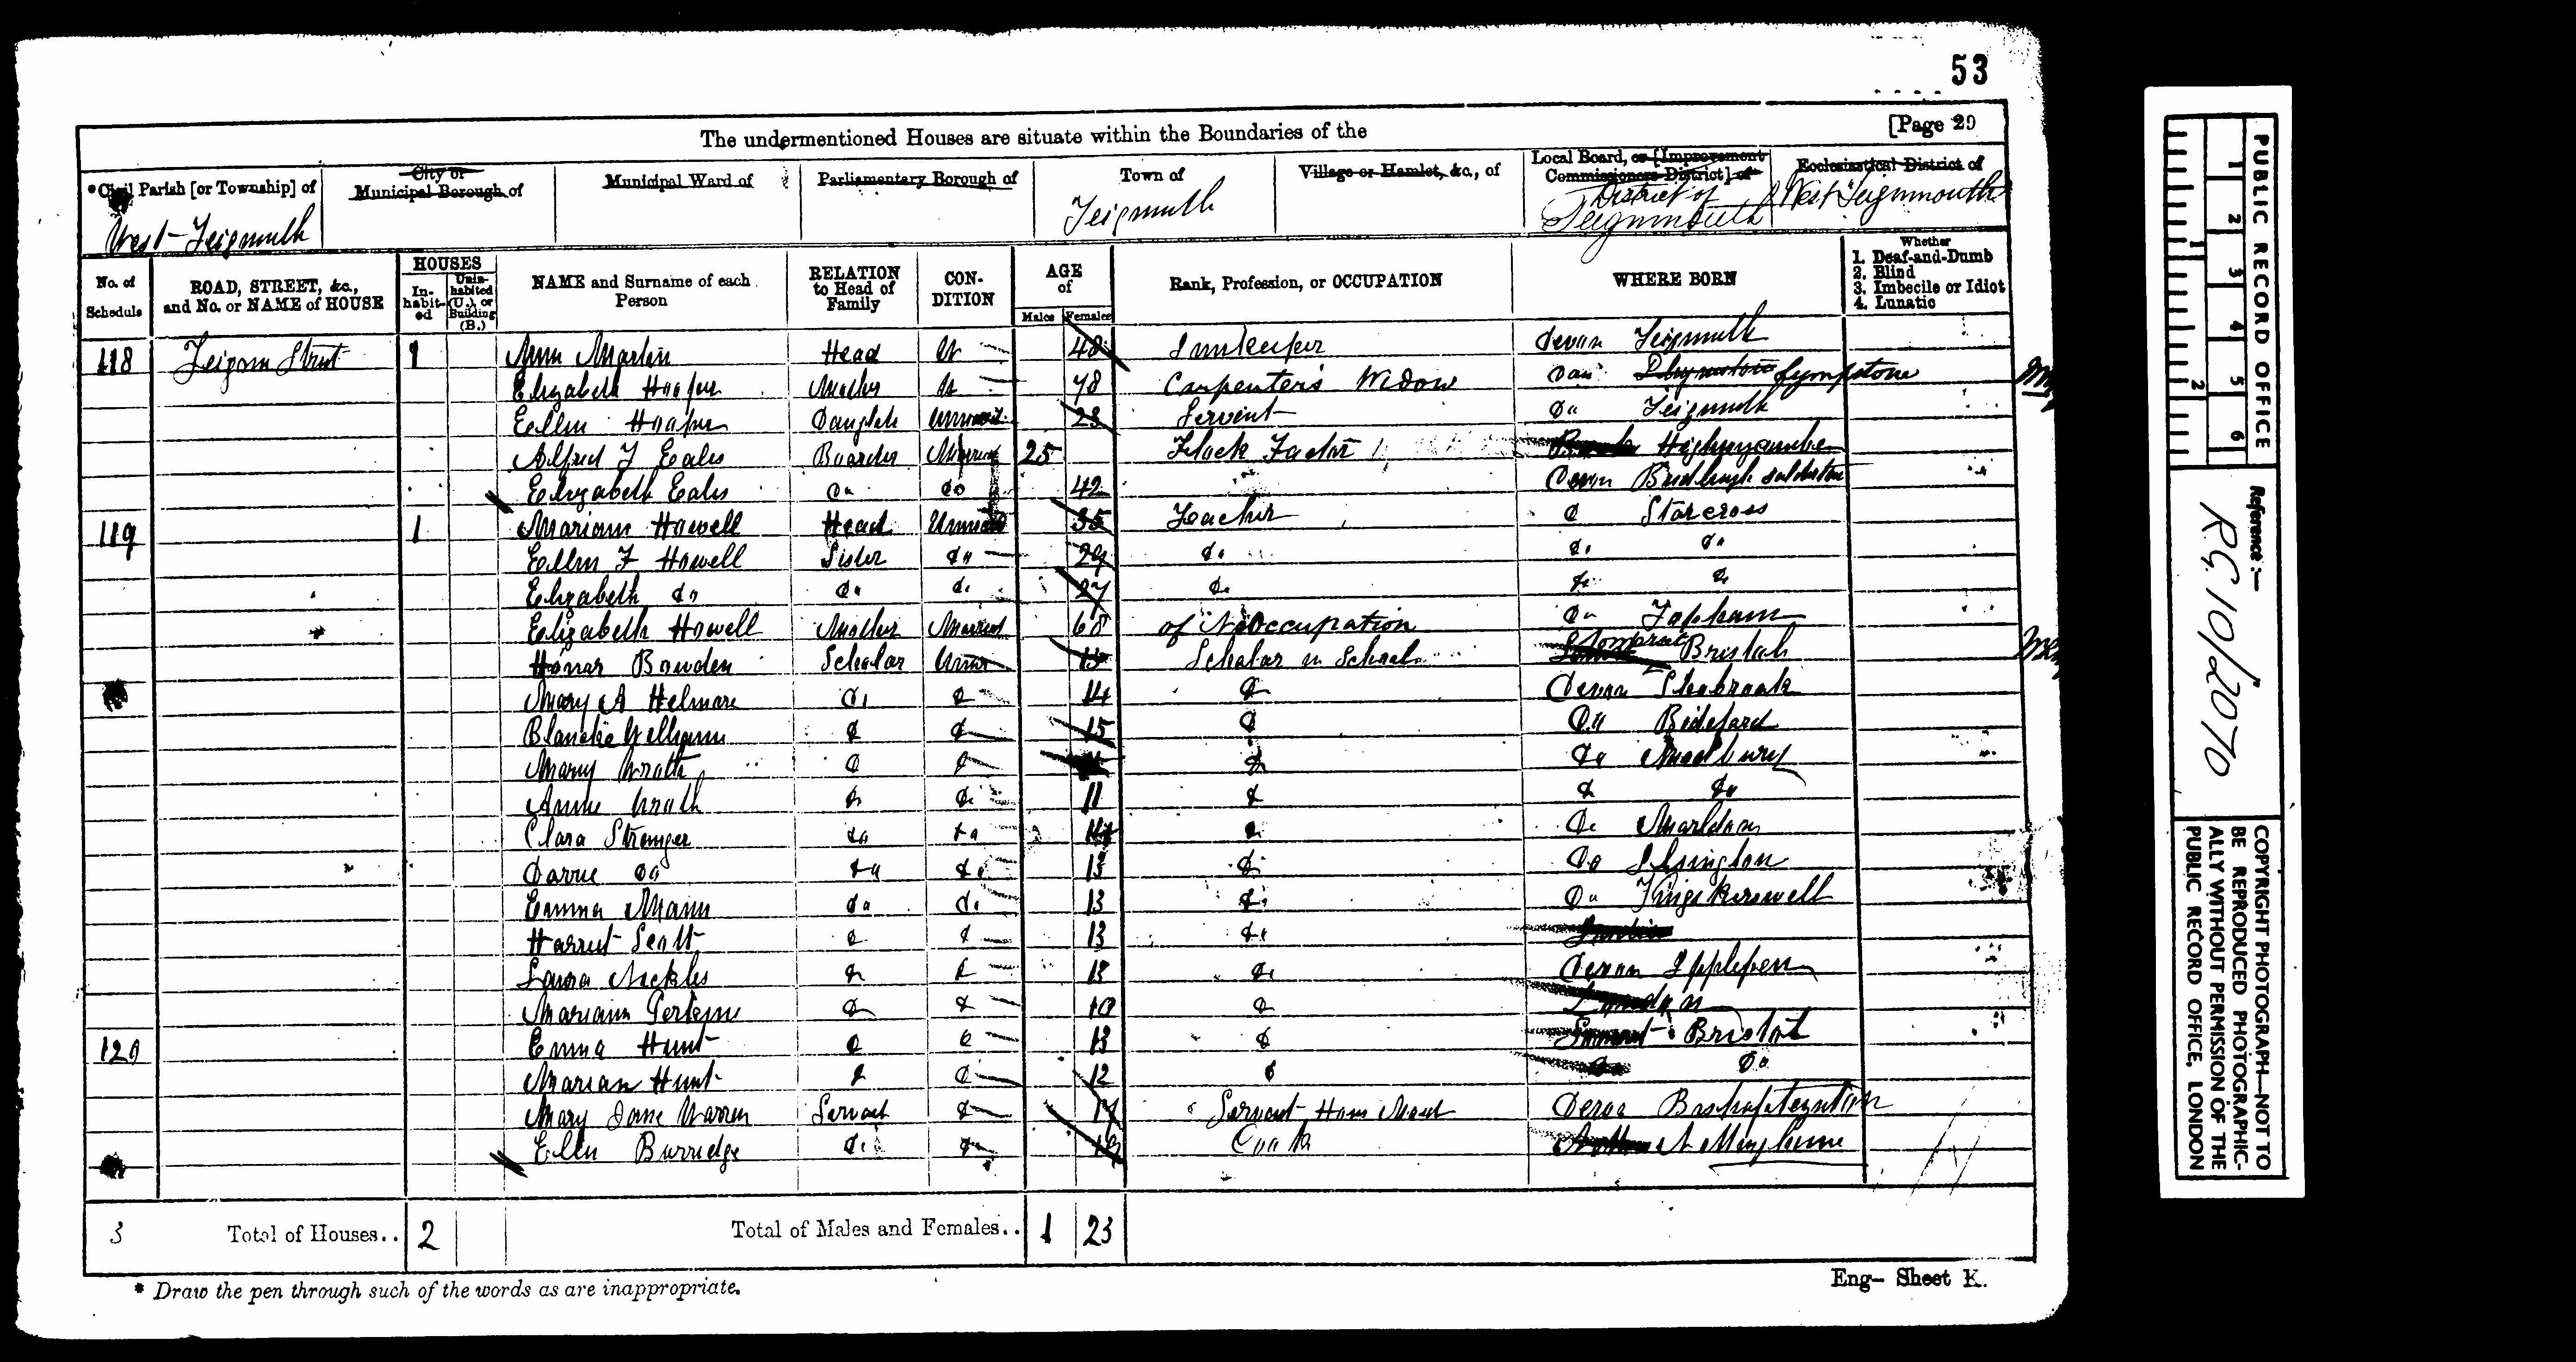 53
The undermentioned Houses are situate within the Boundaries of the [Page 29
*Civil Parish [or Township] of City or Municipal Borough of Municipal Ward of Parliamentary Borough of Town of Village or Hamlet, &c., of Local Board, or [Improvement Commissioners District] of Ecclesiastical District of
West Teignmuth Teignmuth District of Teignmouth West Teignmouth
No. of Schedule ROAD, STREET, &c., and No. or NAME of HOUSE HOUSES Inhabited Uninhabited (U.), or Building (B.) NAME and Surname of each Person RELATION to Head of Family CONDITION AGE of Males Females Rank, Profession, or OCCUPATION WHERE BORN Whether 1. Deaf-and-Dumb 2. Blind 3. Imbecile or Idiot 4. Lunatic
118 Street 1 Ann Martin Head W 48 Innkeeper Devon Teignmuth
Elizabeth Hooper Mother W 78 Carpenter's Widow Do Lympstone
Ellen Hooper Daughter 23 Servent Do Teignmuth
Alfred Eales Boarder Married 25 Factor Highwycombe
Elizabeth Eales Do Do 42 Devon
119 1 Mariann Howell Head 35 Teacher D Starcross
Ellen F Howell Sister Do 29 Do Do Do
Elizabeth Do Do Do 27 Do Do Do
Elizabeth Howell Mother Married 68 of No Occupation Do Topham
Bowden Scholar Unmr 15 Scholar in School Bristol
Mary A Helmore Do Do 14 Do Devon
Blanche Williams Do Do 15 Do Do Bideford
Mary Wroth Do Do Do Do Modbury
Annie Wroth Do Do 11 Do Do Do
Clara Stranger Do Do 14 Do Do Marldon
Do Do Do 13 Do Do Ilsington
Emma Mann Do Do 13 Do Do Kingskerswell
Harriet Scott Do Do 13 Do
Laura Nickles Do Do 13 Do Devon Ipplepen
Mariann Do Do 10 Do London
120 Emma Hunt Do Do 13 Do Bristol
Marian Hunt Do Do 12 Do Do Do
Mary Jane Warren Servant Do 17 Servant House Maid Devon Bishopsteignton
Ellen Burridge Do Do 19 Cook
3 Total of Houses.. 2 Total of Males and Females.. 1 23
* Draw the pen through such of the words as are inappropriate.
Eng- Sheet K.
PUBLIC RECORD OFFICE
1 2 3 4 5 6
1 2
Reference:-
RG 10/2070
COPYRIGHT PHOTOGRAPH—NOT TO BE REPRODUCED PHOTOGRAPHICALLY WITHOUT PERMISSION OF THE PUBLIC RECORD OFFICE, LONDON